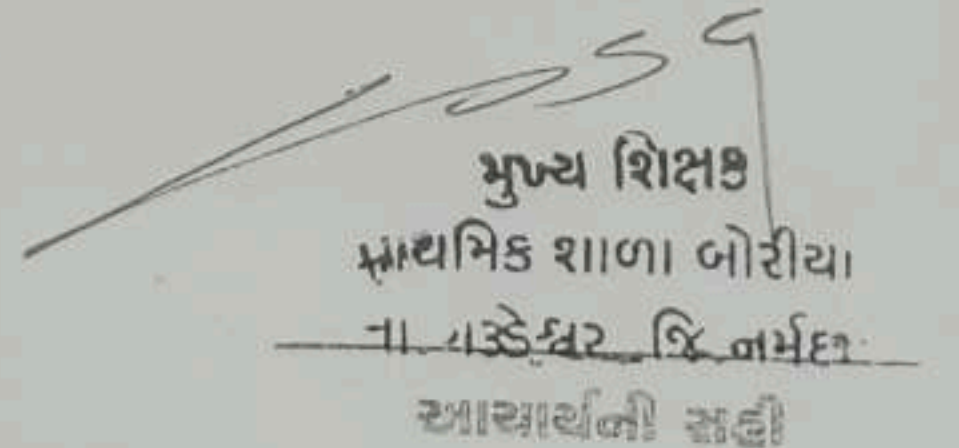 મુખ્ય શિક્ષક
પ્રાથમિક શાળા બોરીયા
તા. ગરુડેશ્વર જિ નર્મદા
આચાર્યની સહી